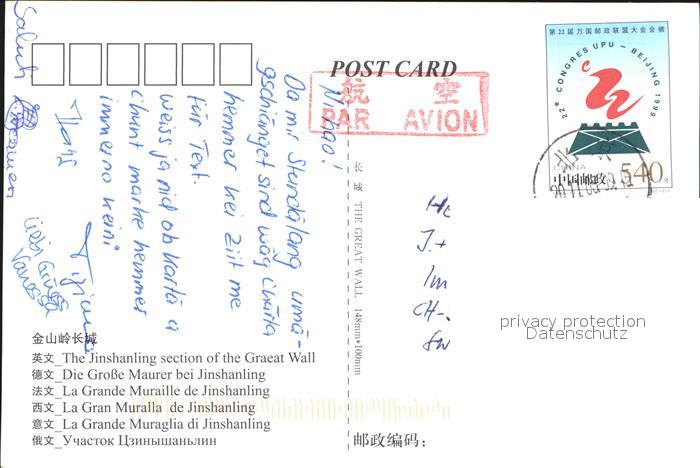 POST CARD
航 空
PAR AVION
第22届万国邮政联盟大会会徽
22e CONGRES UPU - BEIJING 1999
CHINA
中国邮政
540分
Ni hao!
Da mir Stundälang umä-
gschlänget sind wäg Chärtä
hemmer kei Ziit me
für Text.
weiss ja nid ob Kartä a
chunt marke hemmer
immer no keini
Liebi Grüess
Vanessa
长城 THE GREAT WALL 148mm*100mm
CH-
privacy protection
Datenschutz
金山岭长城
英文_The Jinshanling section of the Graeat Wall
德文_Die Große Maurer bei Jinshanling
法文_La Grande Muraille de Jinshanling
西文_La Gran Muralla de Jinshanling
意文_La Grande Muraglia di Jinshanling
俄文_Участок Цзинышаньлин
邮政编码: